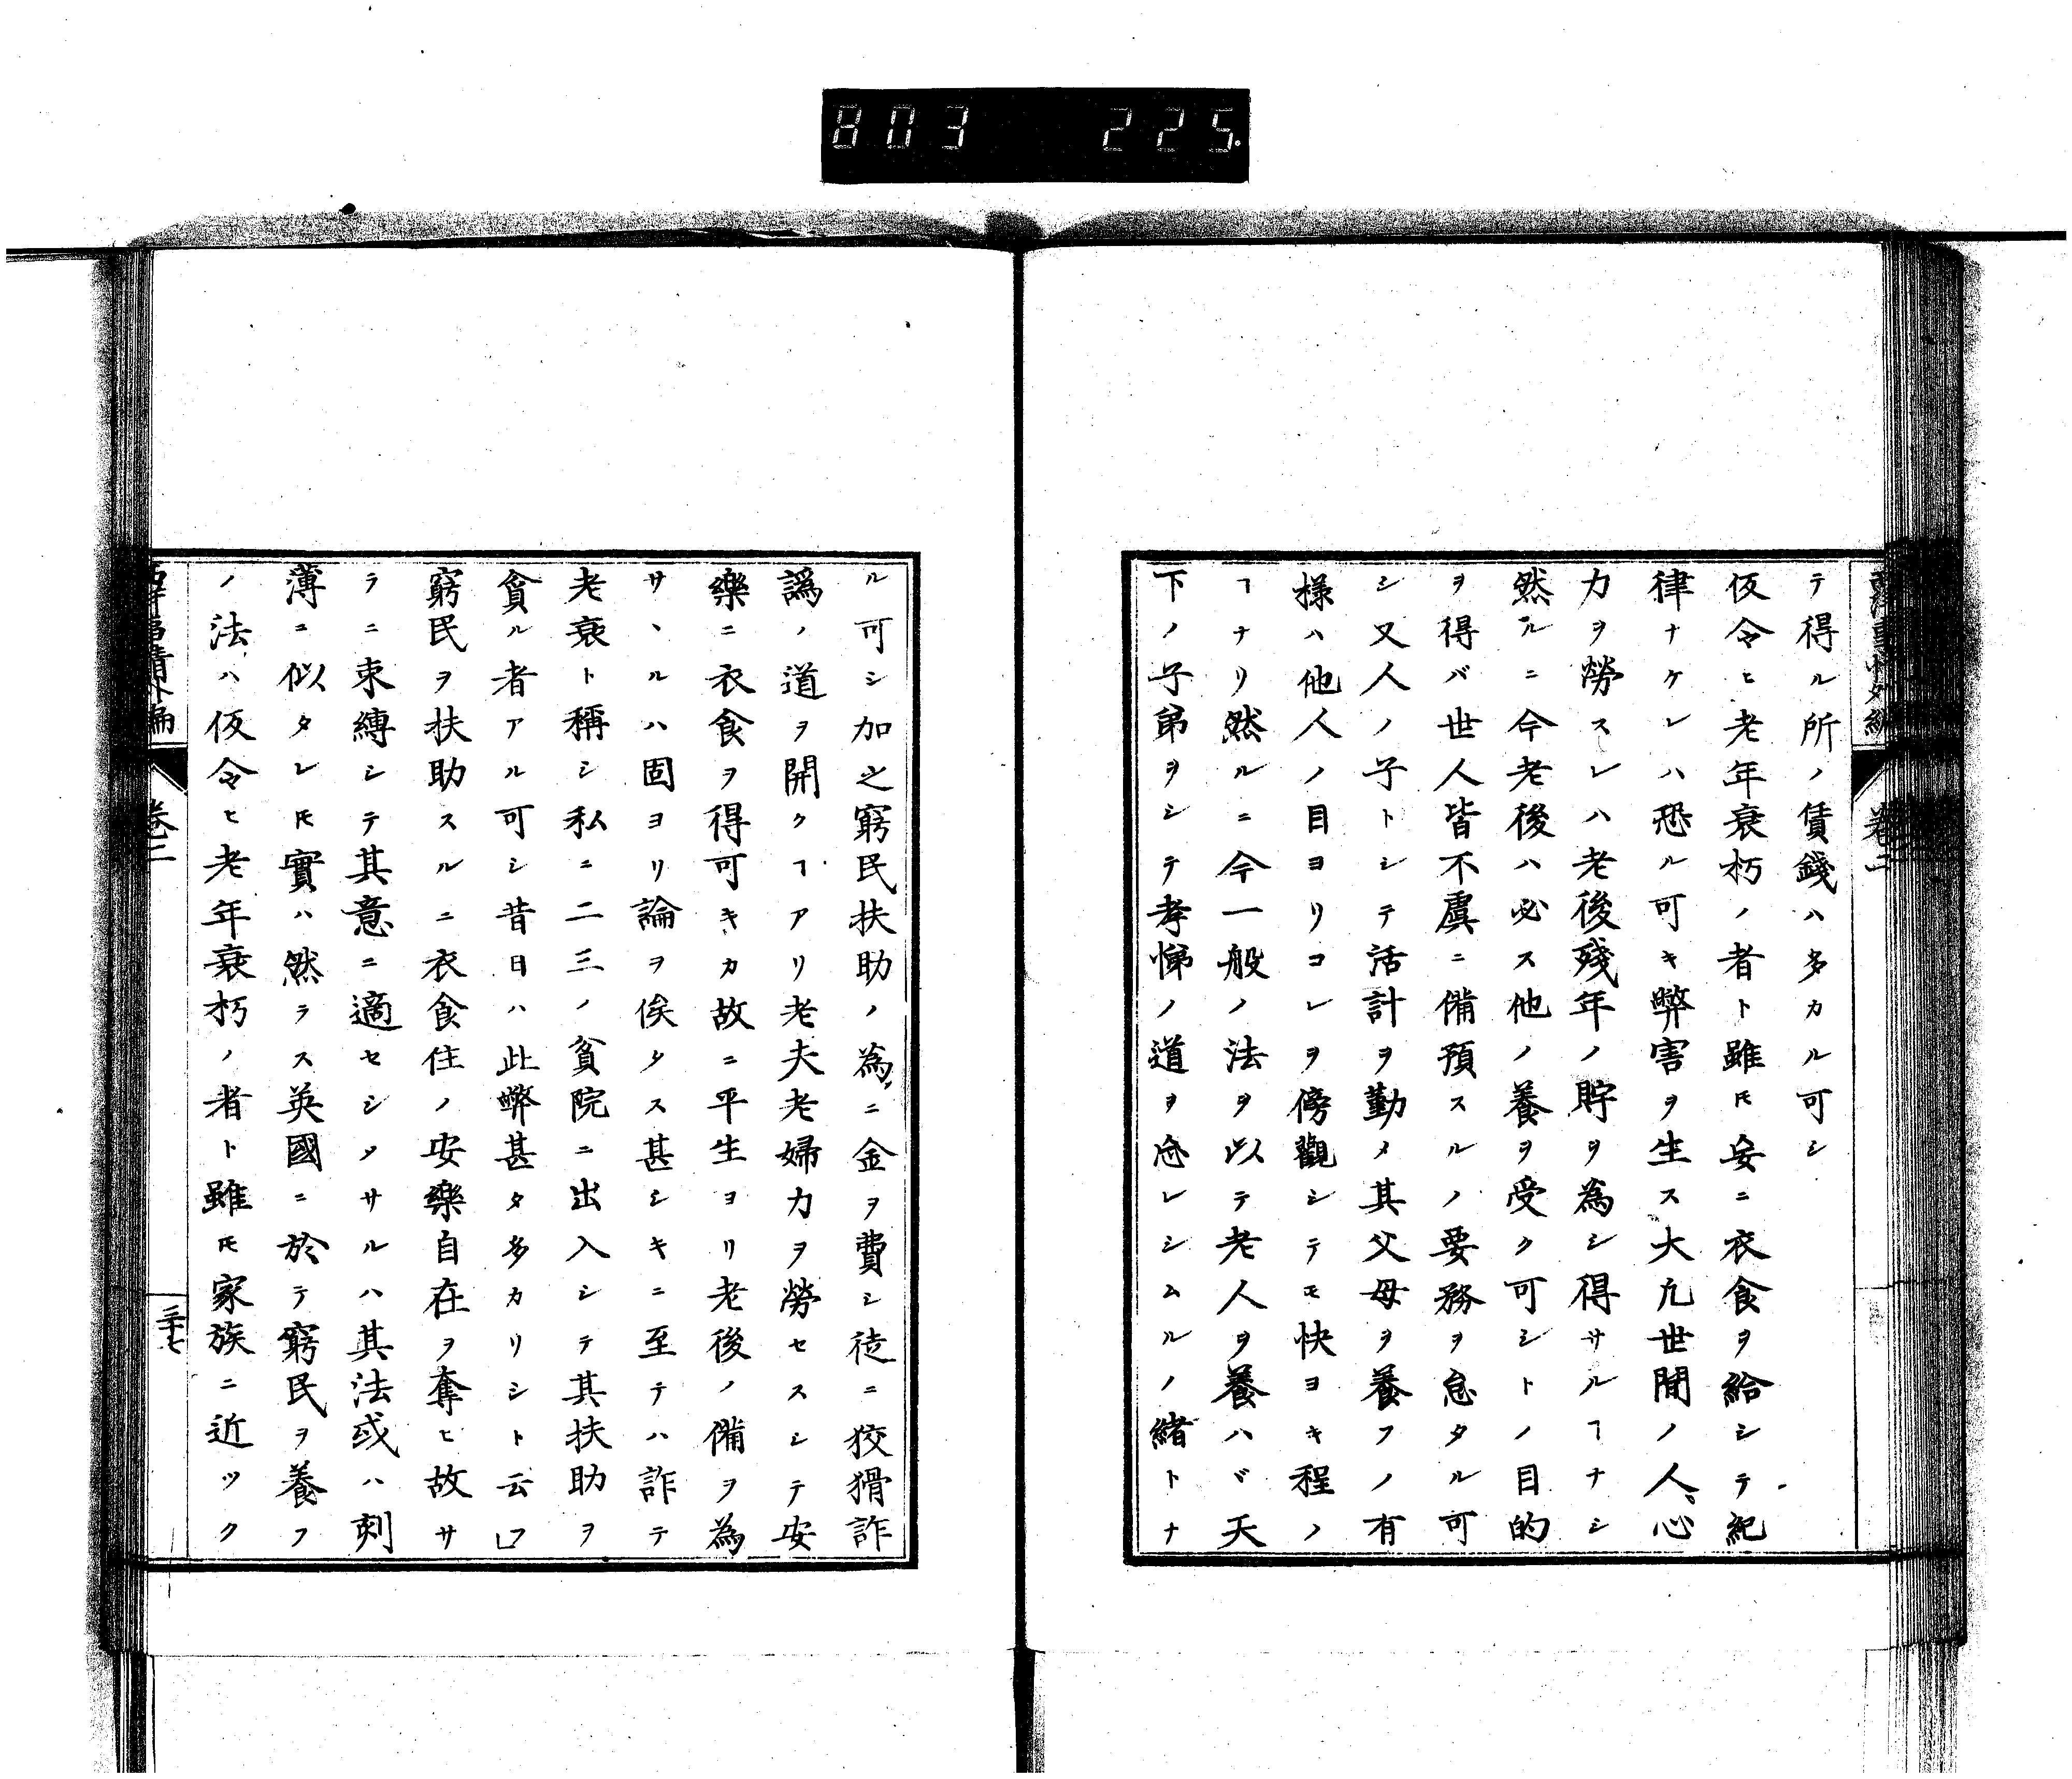 803 225.
西洋事情外編 卷二
テ得ル所ノ賃錢ハ多カル可シ
仮令ヒ老年衰朽ノ者ト雖𪜈妄ニ衣食ヲ給シテ紀
律ナケレハ恐ル可キ弊害ヲ生ス大凢世間ノ人心
力ヲ勞スレハ老後殘年ノ貯ヲ為シ得サルヿナシ
然ルニ今老後ハ必ス他ノ養ヲ受ク可シトノ目的
ヲ得バ世人皆不虞ニ備預スルノ要務ヲ怠タル可
シ又人ノ子トシテ活計ヲ勤メ其父母ヲ養フノ有
様ハ他人ノ目ヨリコレヲ傍觀シテモ快ヨキ程ノ
ヿナリ然ルニ今一般ノ法ヲ以テ老人ヲ養ハバ天
下ノ子弟ヲシテ孝悌ノ道ヲ怠レシムルノ緒トナ
ル可シ加之窮民扶助ノ為ニ金ヲ費シ徒ニ狡猾詐
譌ノ道ヲ開クヿアリ老夫老婦力ヲ勞セスシテ安
樂ニ衣食ヲ得可キカ故ニ平生ヨリ老後ノ備ヲ為
サヽルハ固ヨリ論ヲ俟タス甚シキニ至テハ詐テ
老衰ト稱シ私ニ二三ノ貧院ニ出入シテ其扶助ヲ
貪ル者アル可シ昔日ハ此弊甚タ多カリシト云フ
窮民ヲ扶助スルニ衣食住ノ安樂自在ヲ奪ヒ故サ
ラニ束縛シテ其意ニ適セシメサルハ其法或ハ刻
薄ニ似タレ𪜈實ハ然ラス英國ニ於テ窮民ヲ養フ
ノ法ハ仮令ヒ老年衰朽ノ者ト雖𪜈家族ニ近ツク
西洋事情外編 卷二 三十七